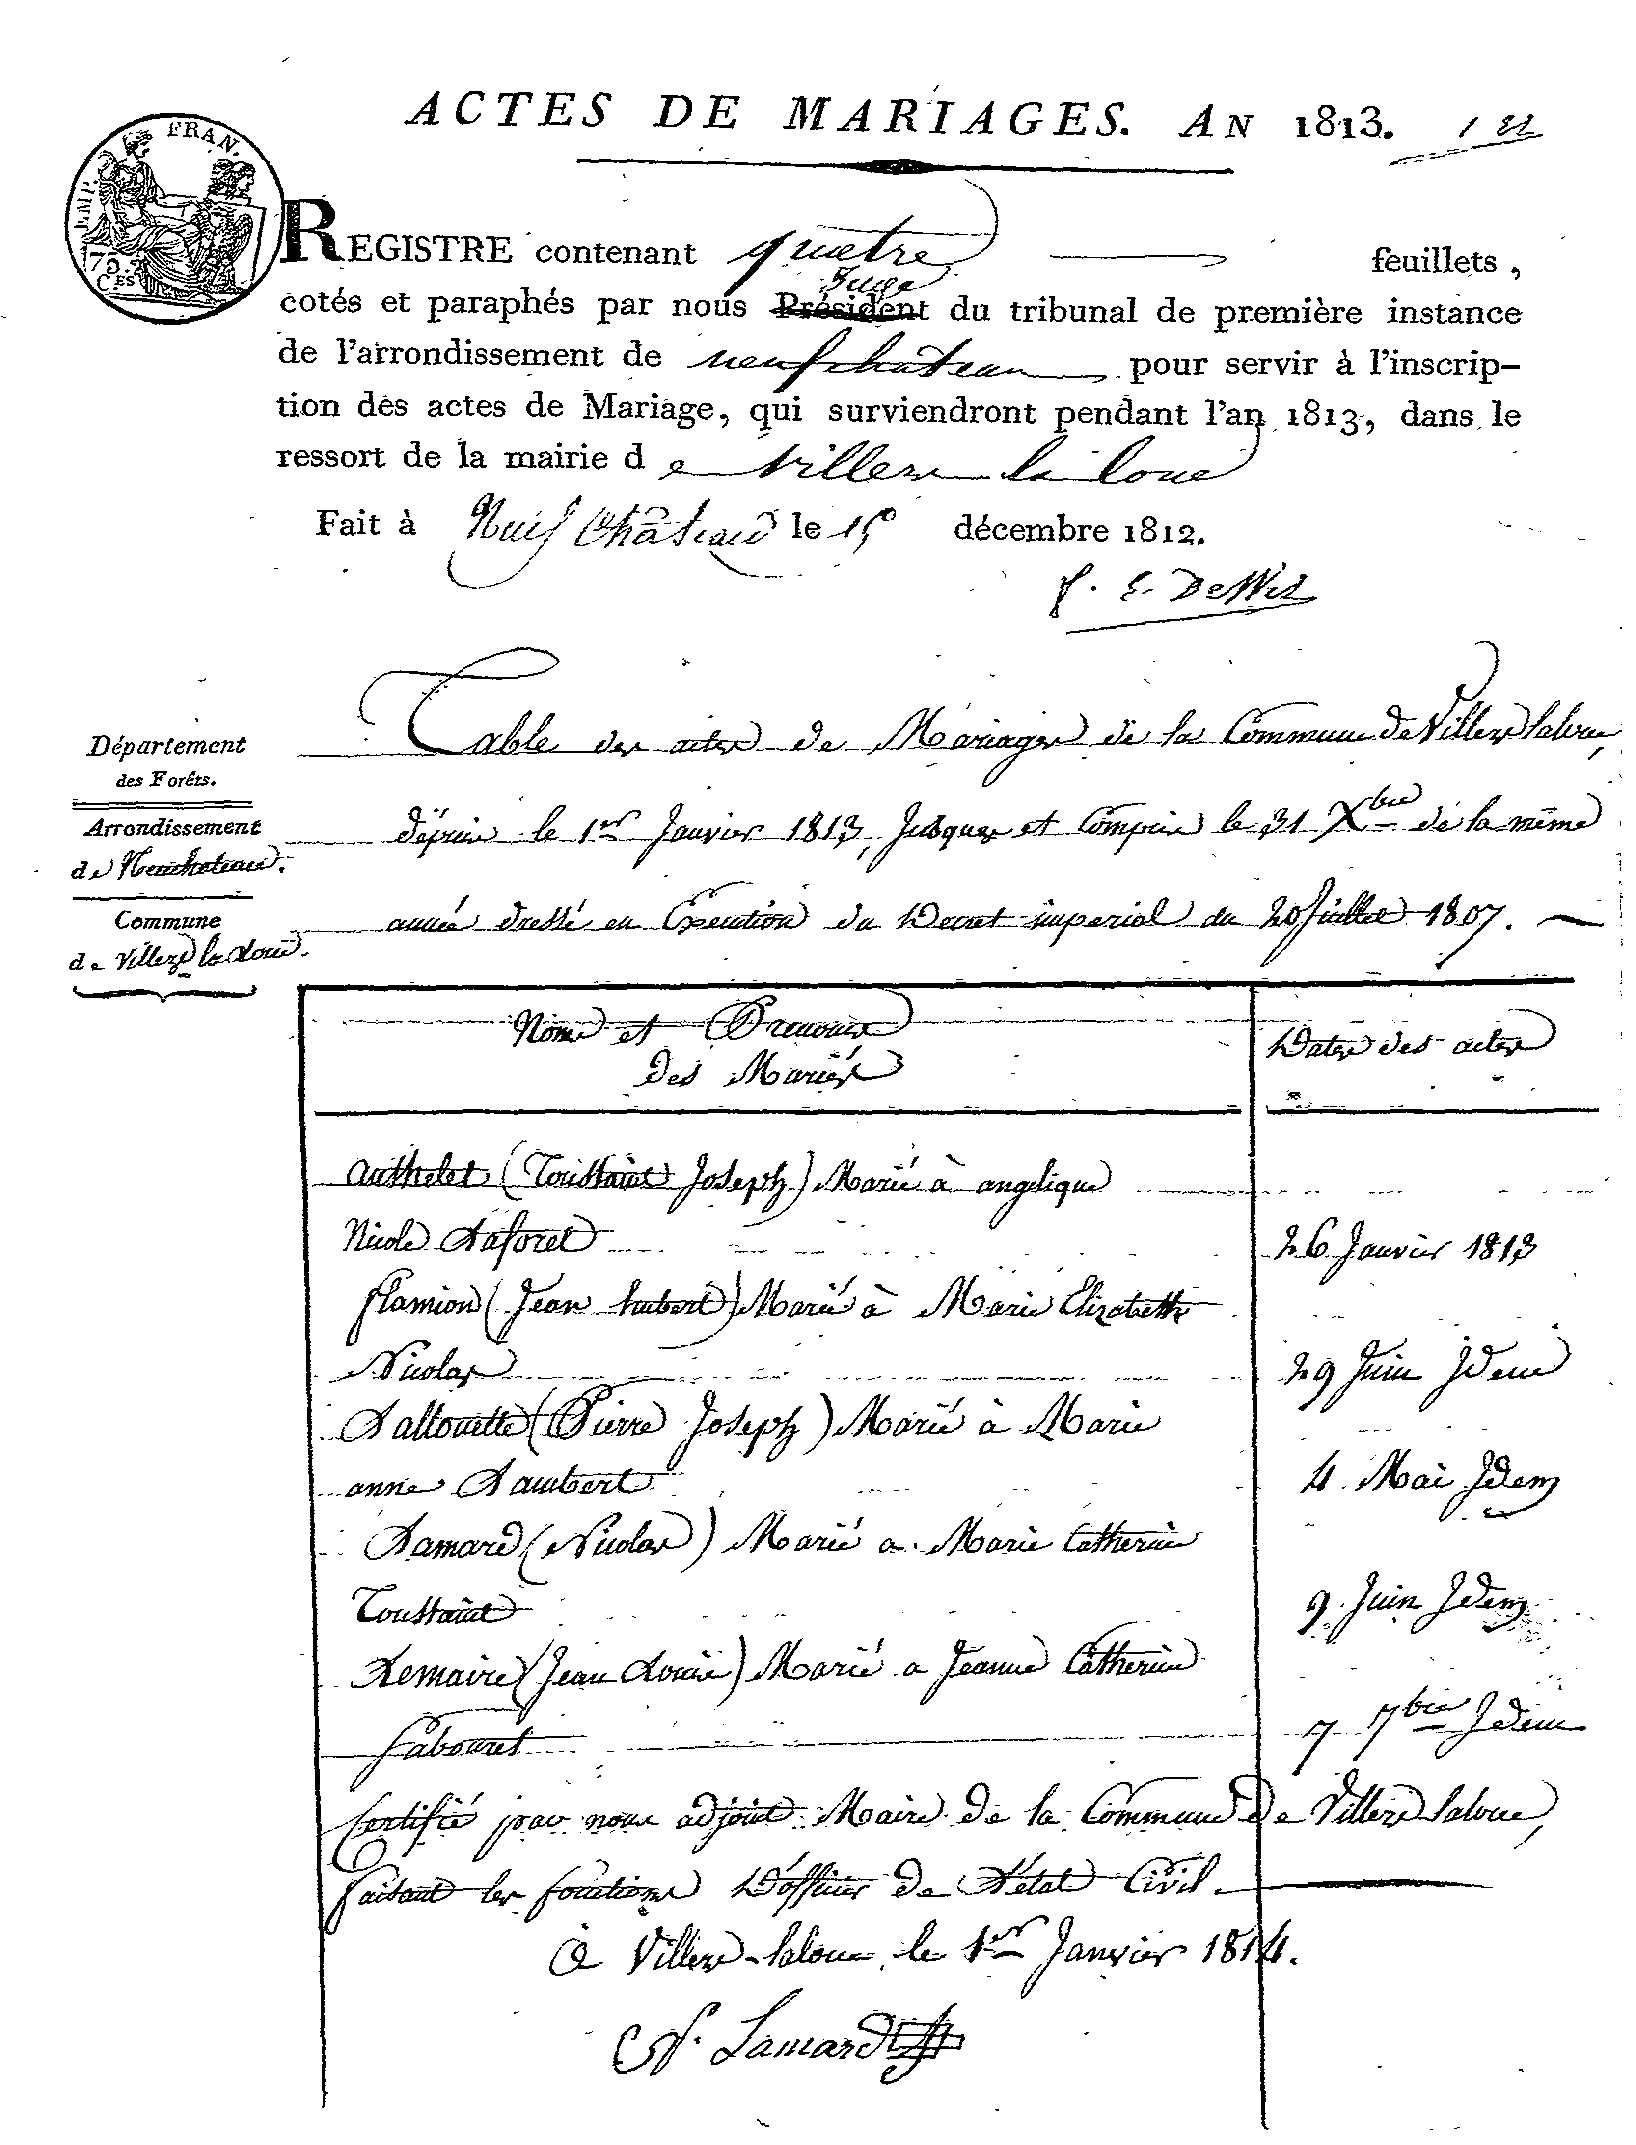 ACTES DE MARIAGES. AN 1813.
EMP. FRAN.
75. CES
REGISTRE contenant quatre feuillets,
Juge
cotés et paraphés par nous Président du tribunal de première instance
de l'arrondissement de neufchateau pour servir à l'inscrip-
tion des actes de Mariage, qui surviendront pendant l'an 1813, dans le
ressort de la mairie de villers la loue
Fait à Neuf Château le 15 décembre 1812.
Table des actes de Mariages de la Commune de Villers laloue,
Département
des Forêts.
dépuis le 1er Janvier 1813, Jusques et Compris le 31 Xbre de la même
Arrondissement
de Neuchateau.
année dressé en Execution du Decret imperial du 20 Juillet 1807.
Commune
de Villers la Loue.
Noms et Prenoms
des Mariés
Dates des actes
authelet (Toustaint Joseph) Marié à angelique
Nicole Laforet 26 Janvier 1813
flamion (Jean hubert) Marié à Marie Elizabeth
Nicolas 29 Juin Idem
Lallouette (Pierre Joseph) Marié à Marie
anne Lambert 4 Mai Idem
Lamard (Nicolas) Marié a Marie Catherine
Toustaint 9 Juin Idem
Lemaire (Jean Louis) Marié a Jeanne Catherine
Labouret 7 7bre Idem
Certifié par nous adjoint Maire de la Commune de Villers laloue,
faisant les fonctions D'officier de L'état Civil.
à Villers-laloue le 1er Janvier 1814.
N. Lamard